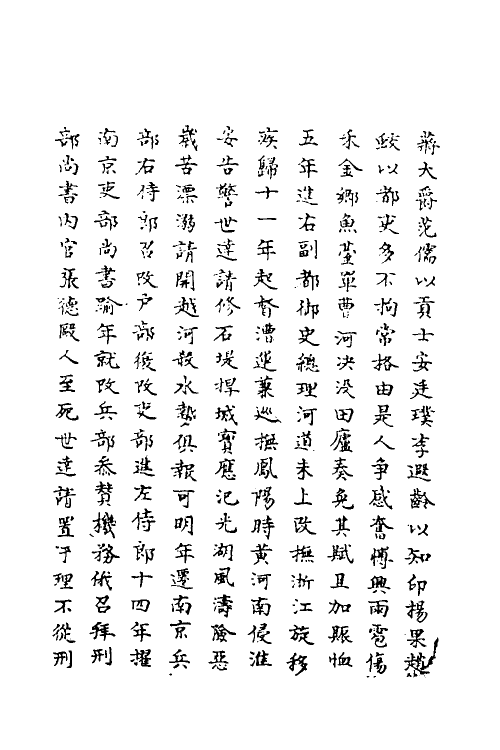 蔣大爵范儒以貢士安廷璞李遐齡以知印楊果趙
鮫以都吏多不拘常格由是人爭感奮博興雨雹傷
禾金鄉魚臺單曹河決没田廬奏免其賦且加賑恤
五年進右副都御史總理河道未上改撫浙江旋移
疾歸十一年起督漕運兼巡撫鳳陽時黄河南侵淮
安告警世達請修石堤捍城寶應汜光湖風濤險惡
歲苦漂溺請開越河殺水勢俱報可明年遷南京兵
部右侍郎召改户部後改吏部進左侍郎十四年擢
南京吏部尚書踰年就改兵部叅贊機務俄召拜刑
部尚書内官張德毆人至死世達請置于理不從刑